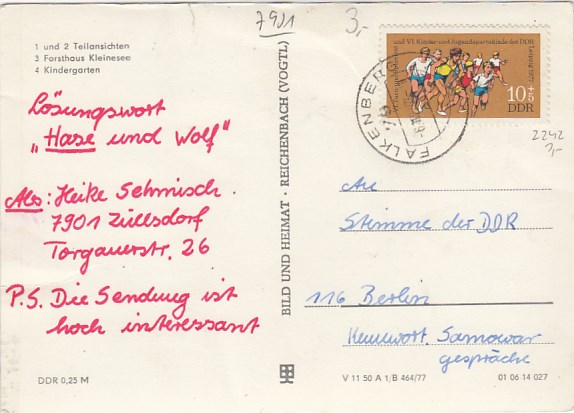 7901
3,-
1 und 2 Teilansichten
3 Forsthaus Kleinesee
4 Kindergarten
Lösungswort
„Hase und Wolf"
Abs: Heike Sehmisch
7901 Züllsdorf
Torgauerstr. 26
P.S. Die Sendung ist
hoch interessant
DDR 0,25 M
BILD UND HEIMAT · REICHENBACH (VOGTL)
und VI. Kinder- und Jugendspartakiade der DDR Leipzig 1977
10+5
DDR
FALKENBERG
2242
3,-
An
Stimme der DDR
116 Berlin
Kennwort. Samowar
gespräche
V 11 50 A 1/B 464/77
01 06 14 027